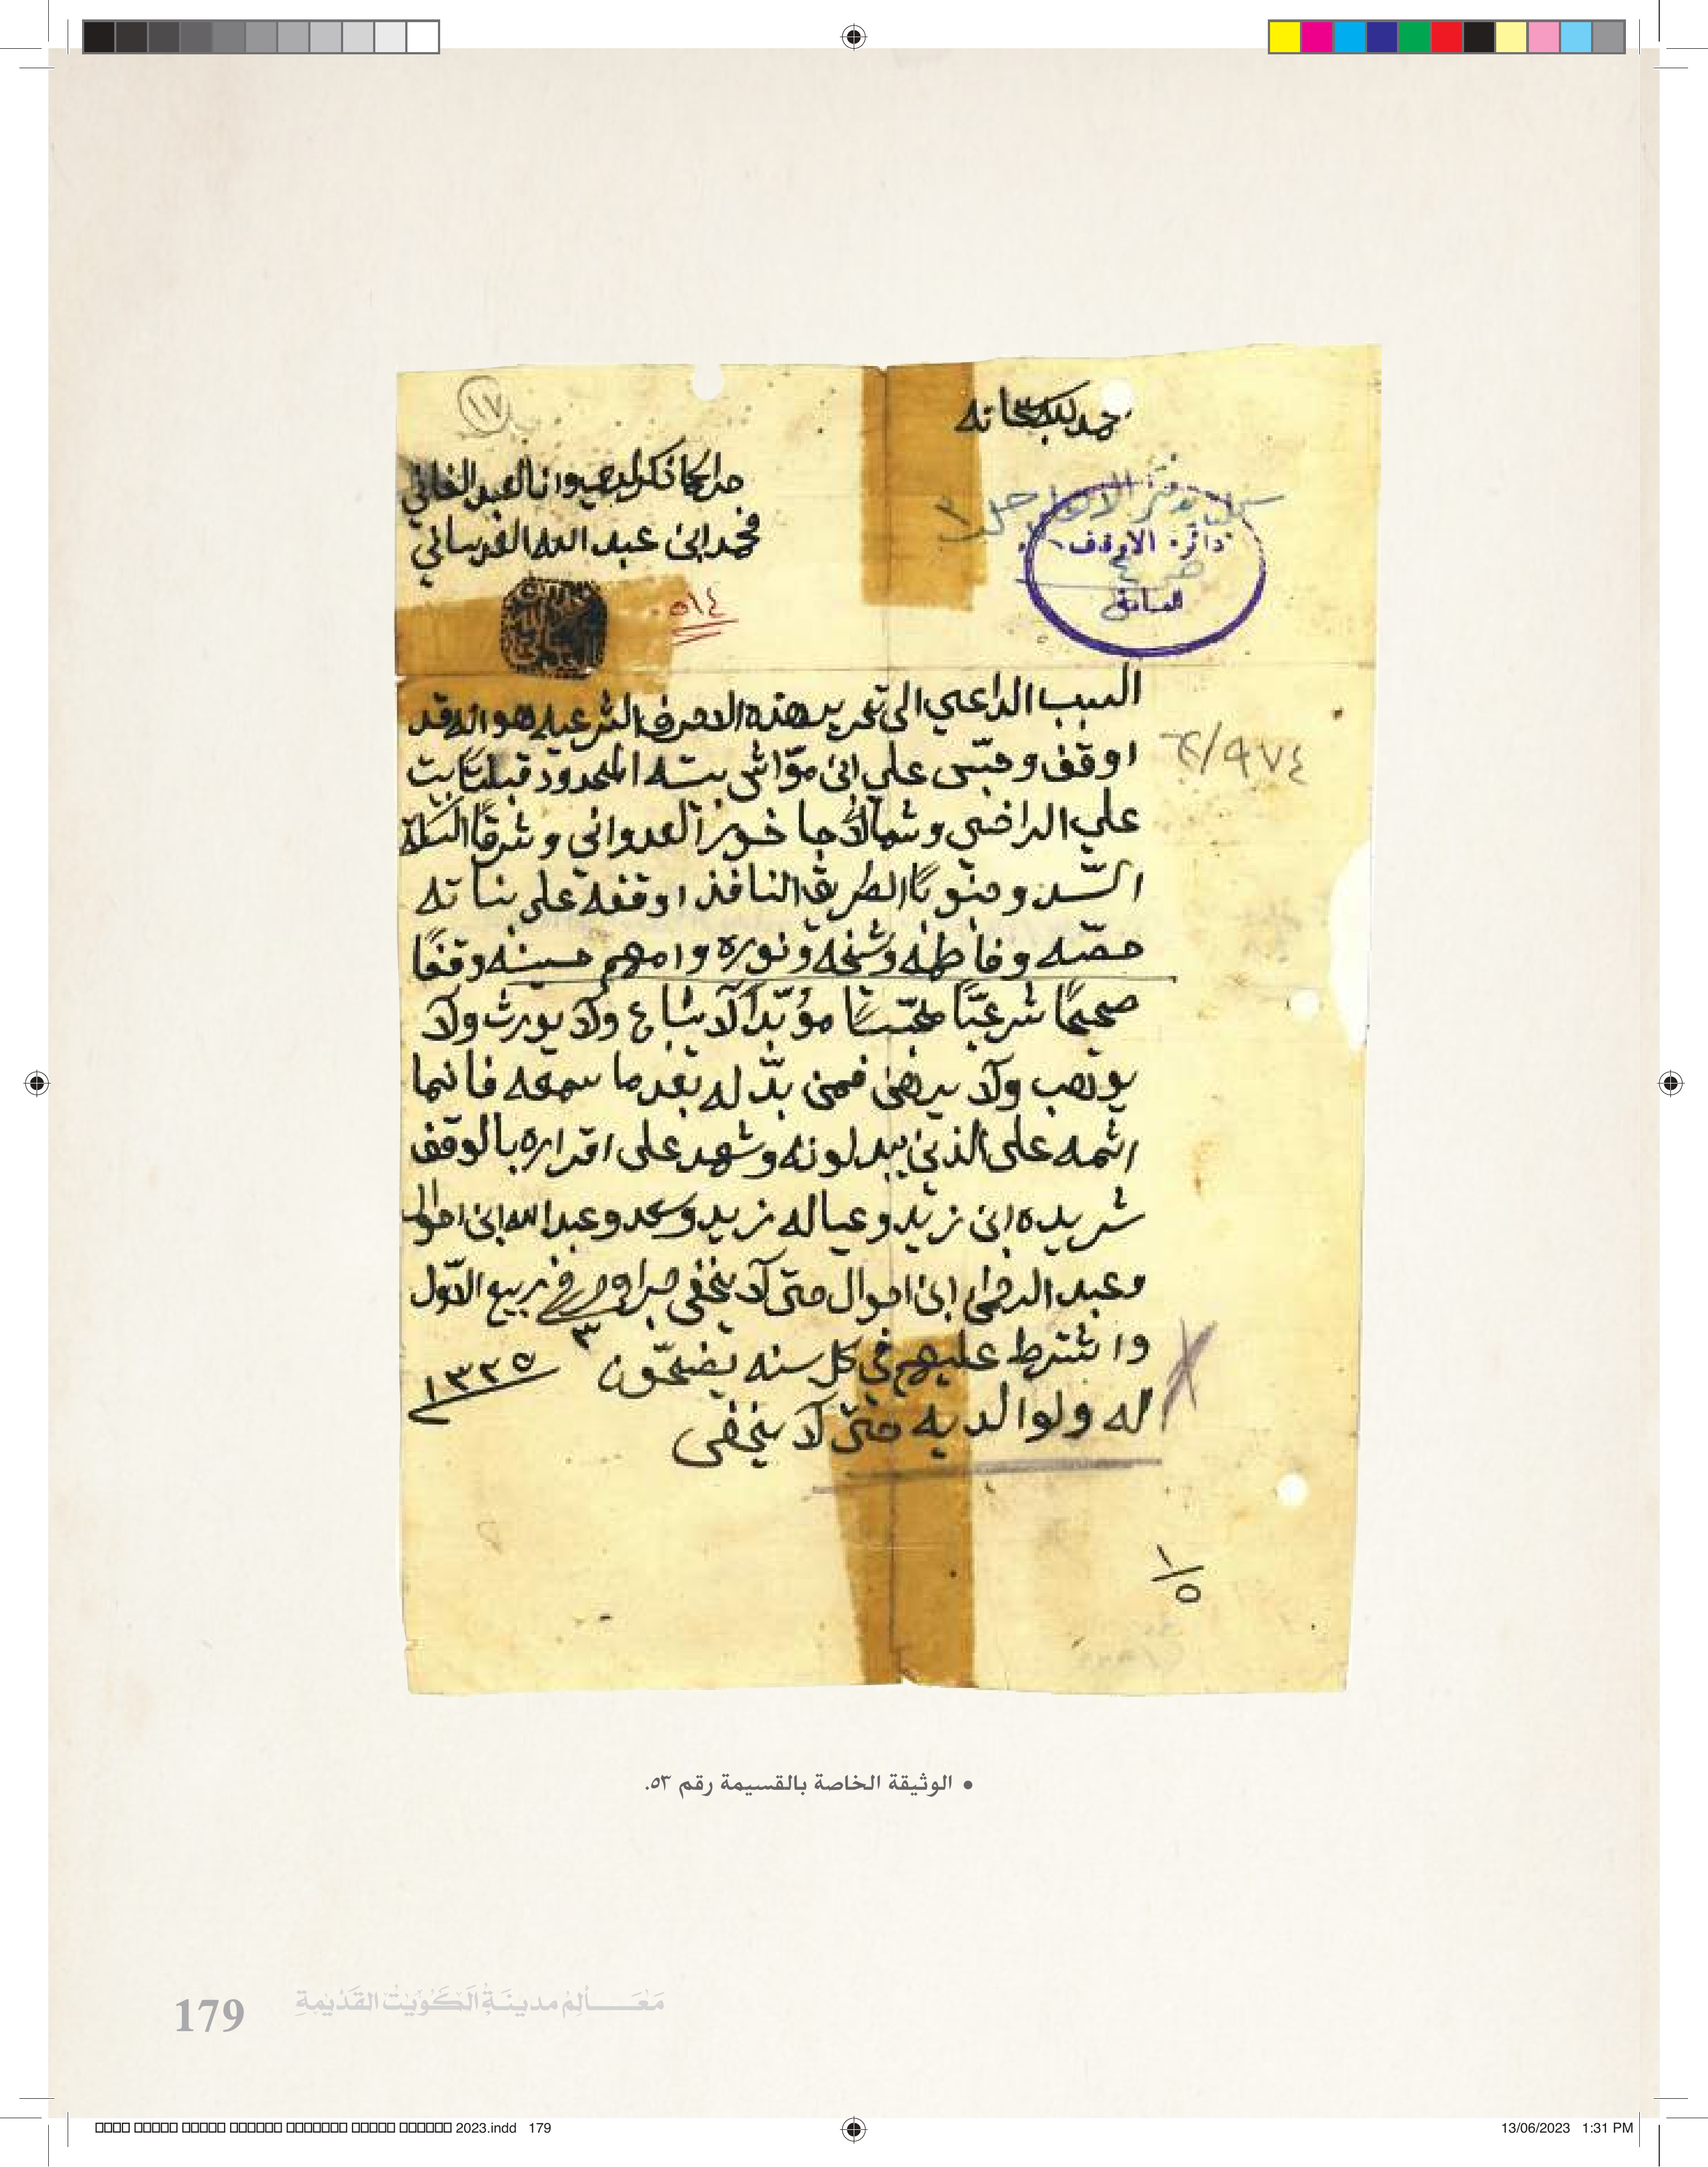 ١٧
حمد لله سبحانه
جرا كما ذكر لدي وانا العبد الفاني
محمد ابن عبد الله الفرساني
سجل بدفتر الاوقاف
دائرة الاوقاف
العامة
٥١٤
السبب الداعي الى تحرير هذه الاحرف الشرعيه هو انه قد
اوقف وحبّس علي ابن موّاش بيته المحدود قبلتًا بيت
علي الراضي وشمالاً جاخور العدواني وشرقًا السكة
السّد وجنوبًا الطريق النافذ اوقفه على بناته
حصّه وفاطمه وشيخه ونوره وامهم حسينه وقفًا
صحيحًا شرعيًّا محبّسًا مؤبّدًا لا يباع ولا يورث ولا
يوهب ولا يرهن فمن بدّله بعد ما سمعه فانما
اثمه على الذين يبدلونه وشهد على اقراره بالوقف
شريده ابن زيد وعياله زيد وسعد وعبد الله ابن احوال
وعبد الرحمن ابن احوال حتى لا يخفى جرا وحرر في ربيع الاوّل
واشترط عليهم في كل سنه يضحّون ٣ ١٣٢٥
له ولوالديه حتى لا يخفى
٦/٩٧٤
١/٥
• الوثيقة الخاصة بالقسيمة رقم ٥٣.
179 مَعَالِمُ مدينَةِ الكُوَيْتِ القَدْيمَةِ
2023.indd 179
13/06/2023 1:31 PM